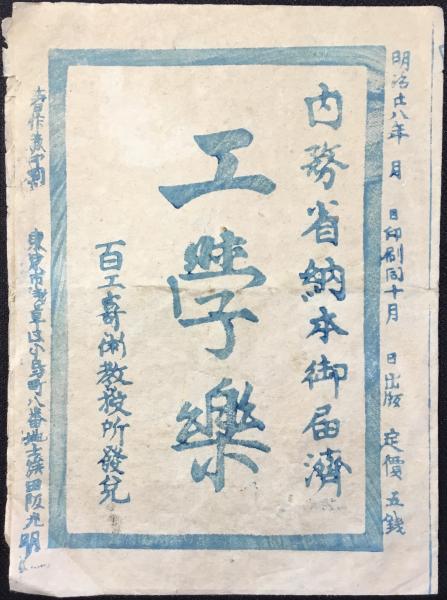 明治廿八年 月 日印刷同十月 日出版 定價五錢
内務省納本御届濟
工學樂
百工寄術教授所發兌
著作兼印刷
東京市浅草区小島町八番地士族田阪九明